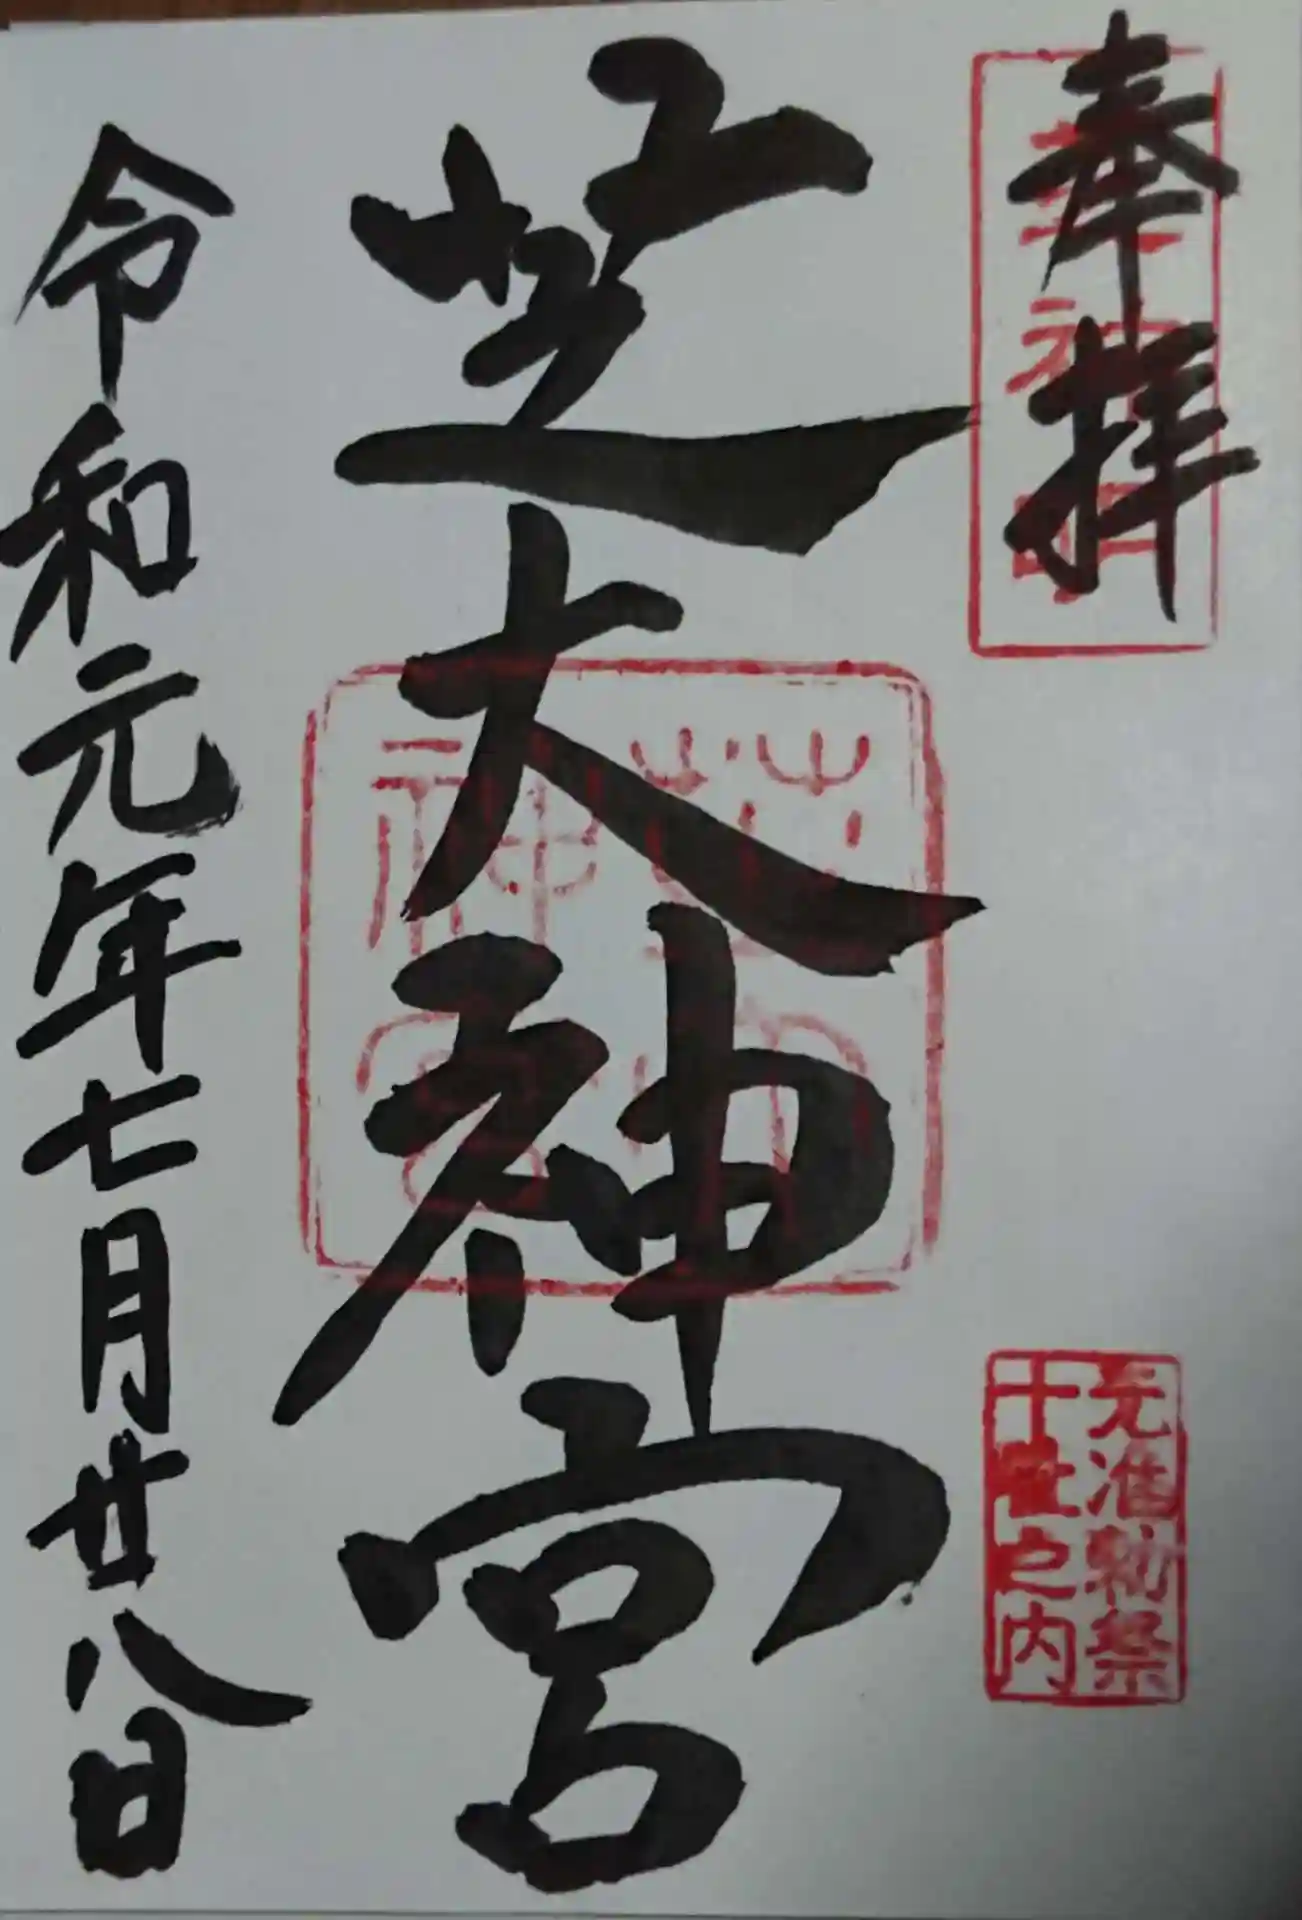 奉拝
元准勅祭
十社之内
芝大神宮
芝大神宮
令和元年七月廿八日